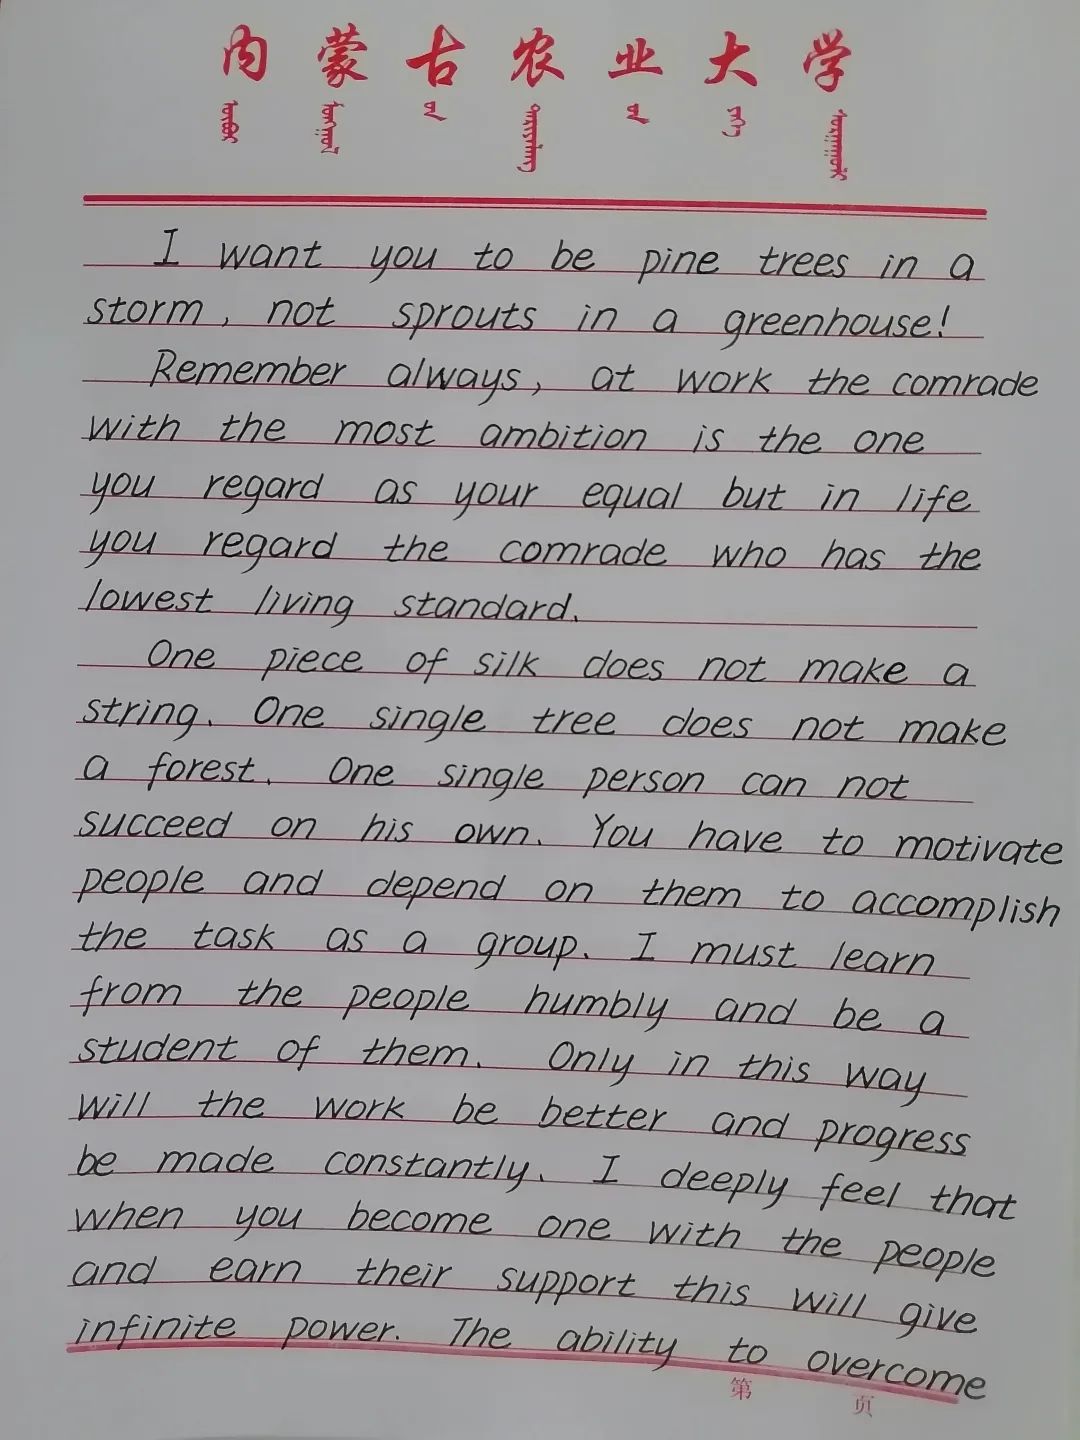 内蒙古农业大学
I want you to be pine trees in a
storm, not sprouts in a greenhouse!
Remember always, at work the comrade
with the most ambition is the one
you regard as your equal but in life
you regard the comrade who has the
lowest living standard.
One piece of silk does not make a
string. One single tree does not make
a forest. One single person can not
succeed on his own. You have to motivate
people and depend on them to accomplish
the task as a group. I must learn
from the people humbly and be a
student of them. Only in this way
will the work be better and progress
be made constantly. I deeply feel that
when you become one with the people
and earn their support this will give
infinite power. The ability to overcome
第 页